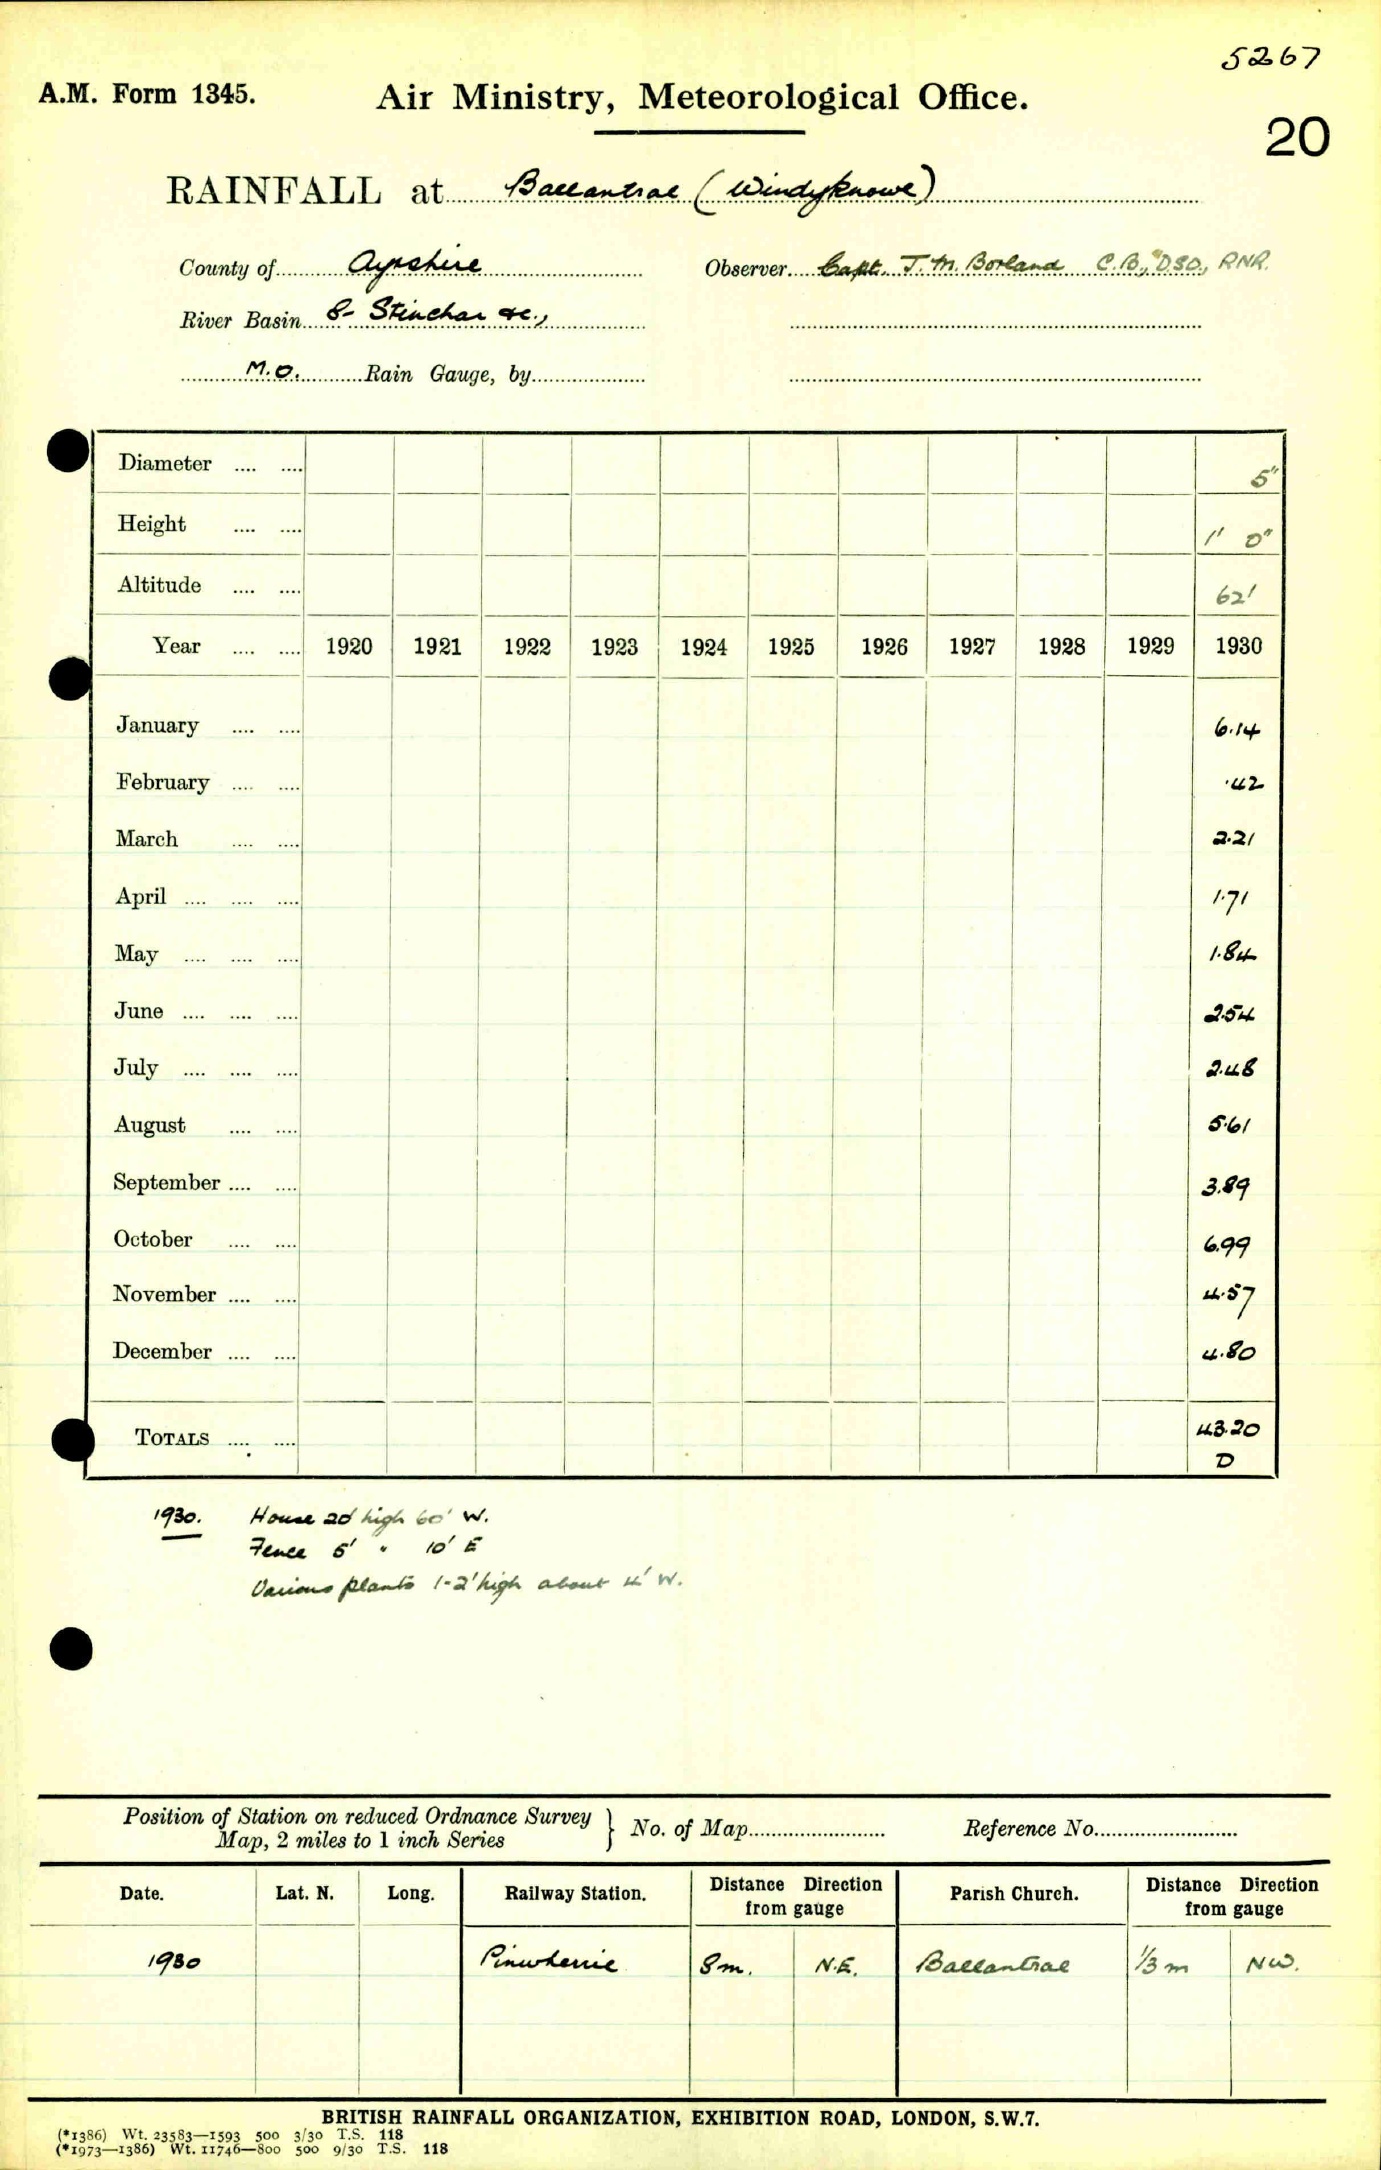 5267
A.M. Form 1345. Air Ministry, Meteorological Office.
20
RAINFALL at Ballantrae (Windyknowe)
County of Ayrshire Observer Capt. J. M. Borland C.B., D.S.O., RNR.
River Basin 8- Stinchar &c.,
M.O. Rain Gauge, by
Diameter .... .... 5"
Height .... .... 1' 0"
Altitude .... .... 62'
Year .... .... 1920 1921 1922 1923 1924 1925 1926 1927 1928 1929 1930
January .... .... 6.14
February .... .... .42
March .... .... 2.21
April .... .... .... 1.71
May .... .... .... 1.84
June .... .... .... 2.54
July .... .... .... 2.48
August .... .... 5.61
September .... .... 3.89
October .... .... 6.99
November .... .... 4.57
December .... .... 4.80
TOTALS .... .... 43.20
D
1930. House 20' high 60' W.
Fence 5' " 10' E
Various plants 1-2' high about 4' W.
Position of Station on reduced Ordnance Survey
Map, 2 miles to 1 inch Series } No. of Map Reference No.
Date. Lat. N. Long. Railway Station. Distance Direction from gauge Parish Church. Distance Direction from gauge
1930 Pinwherrie 8m. N.E. Ballantrae 1/3 m NW.
BRITISH RAINFALL ORGANIZATION, EXHIBITION ROAD, LONDON, S.W.7.
(*1386) Wt. 23583—1593 500 3/30 T.S. 118
(*1973—1386) Wt. 11746—800 500 9/30 T.S. 118